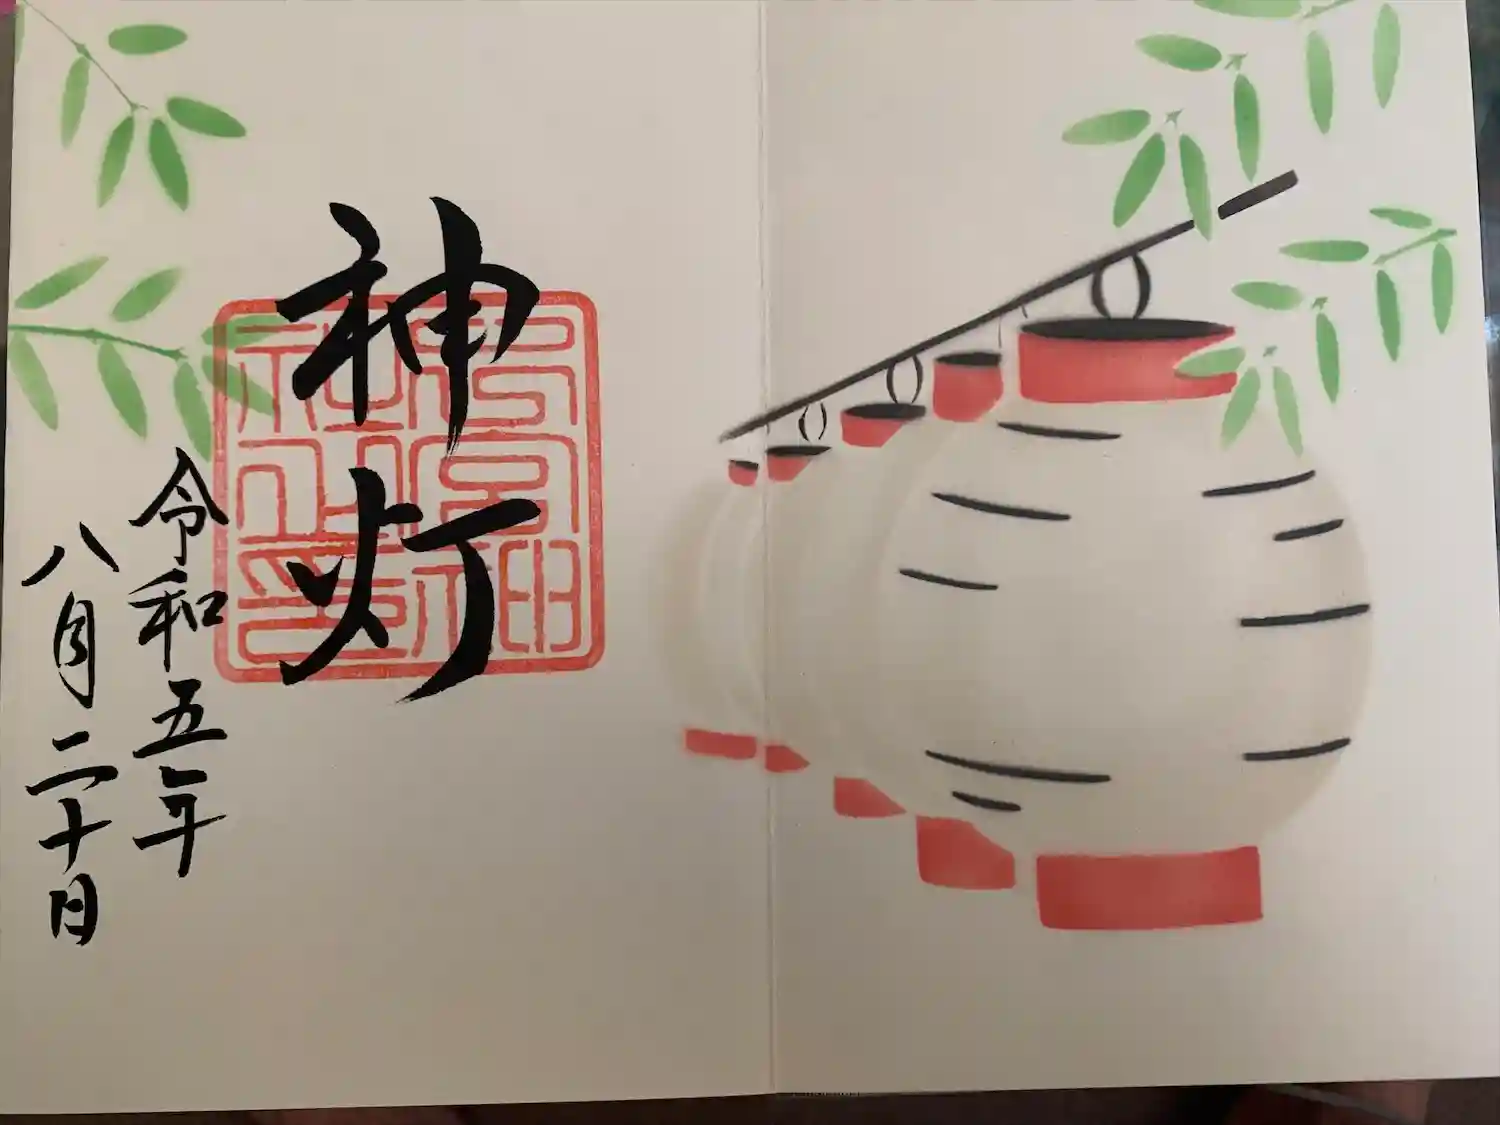 神灯
令和五年
八月二十日